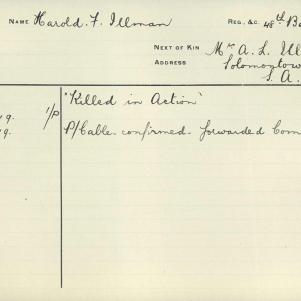 NAME Harold. F. Illman REG., &C. 48th Ba
NEXT OF KIN Mr A. L. Ill
ADDRESS Solomontow
S. A.
"Killed in Action"
19. 1/P
19. P/Cable confirmed forwarded Com